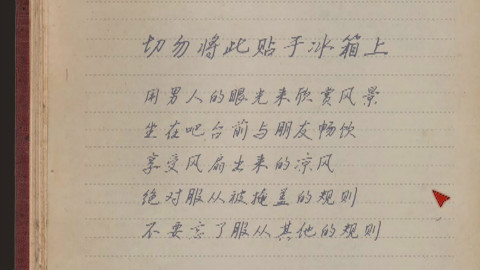 切勿将此贴于冰箱上
用男人的眼光来欣赏风景
坐在吧台前与朋友畅饮
享受风扇出来的凉风
绝对服从被掩盖的规则
不要忘了服从其他的规则